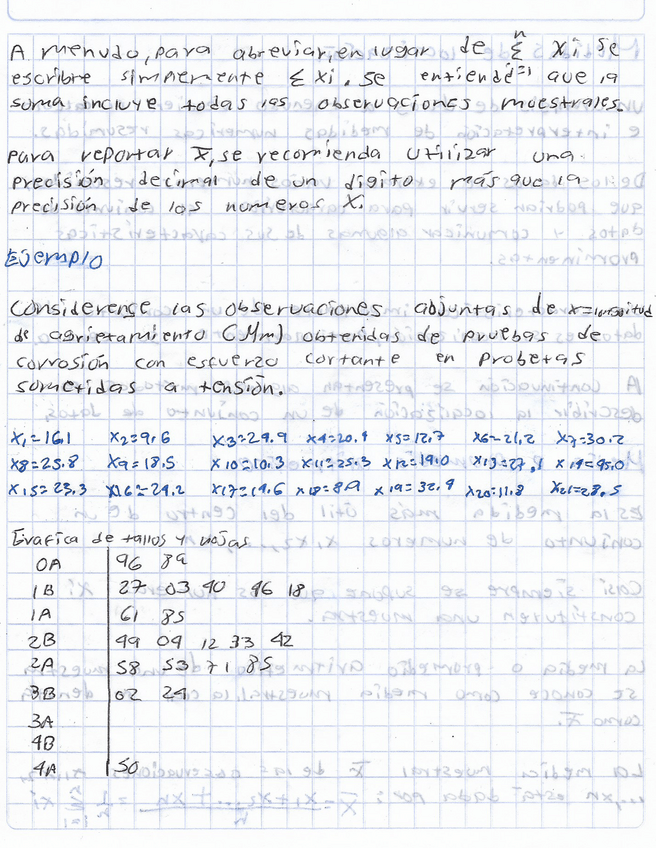 A menudo, para abreviar, en lugar de Σ xi se
n
i=1
escribre simplemente Σ xi. se entiende que la
suma incluye todas las observaciones muestrales.
para reportar x̄, se recomienda utilizar una
precisión decimal de un digito más que la
precisión de los numeros Xi
Ejemplo
Considerense las observaciones adjuntas de x=longitud
de agrietamiento (Mm) obtenidas de pruebas de
corrosión con esfuerzo cortante en probetas
sometidas a tensión.
x1=16.1 x2=9.6 x3=24.9 x4=20.4 x5=12.7 x6=21.2 x7=30.2
x8=25.8 x9=18.5 x10=10.3 x11=25.3 x12=14.0 x13=27.1 x14=45.0
x15=23.3 x16=24.2 x17=14.6 x18=8.9 x19=32.4 x20=11.8 x21=28.5
Grafica de tallos y hojas
0A 96 89
1B 27 03 40 46 18
1A 61 85
2B 49 04 12 33 42
2A 58 53 71 85
3B 02 24
3A
4B
4A 50